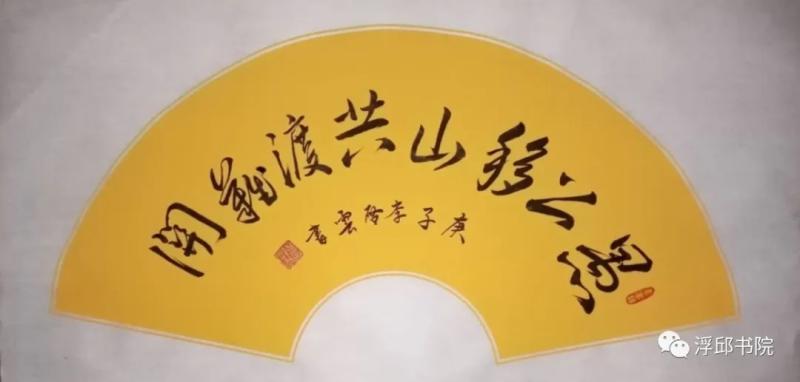 愚公移山共渡難關
庚子李雲書
浮邱书院